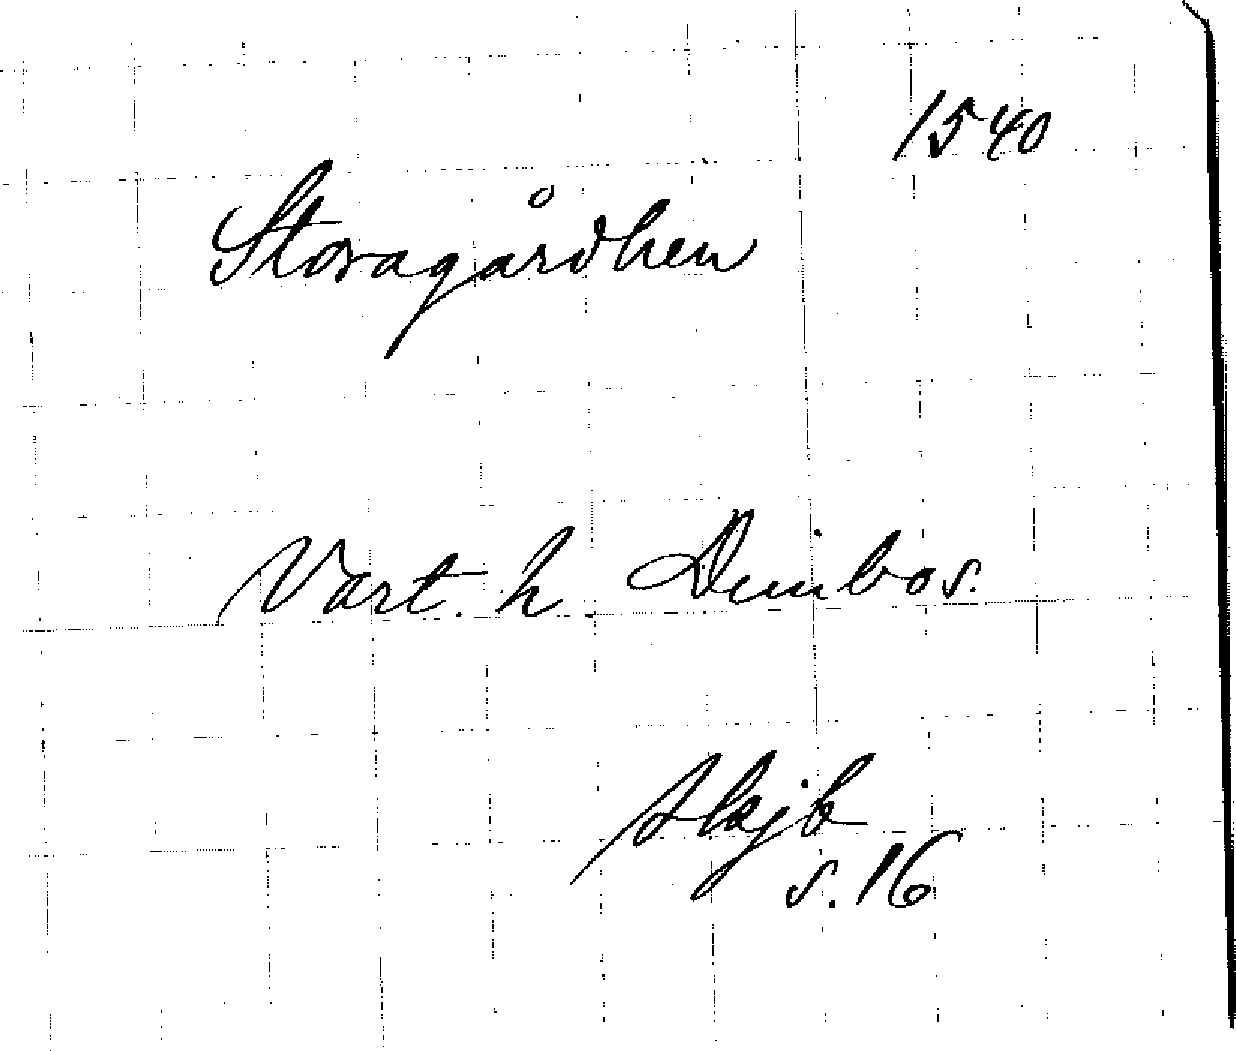 1540
Storagårdhen
Vart. h. Dimbos.
Skjb
s. 16